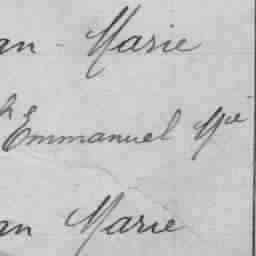 an - Marie
Emmanuel Mie
an Marie